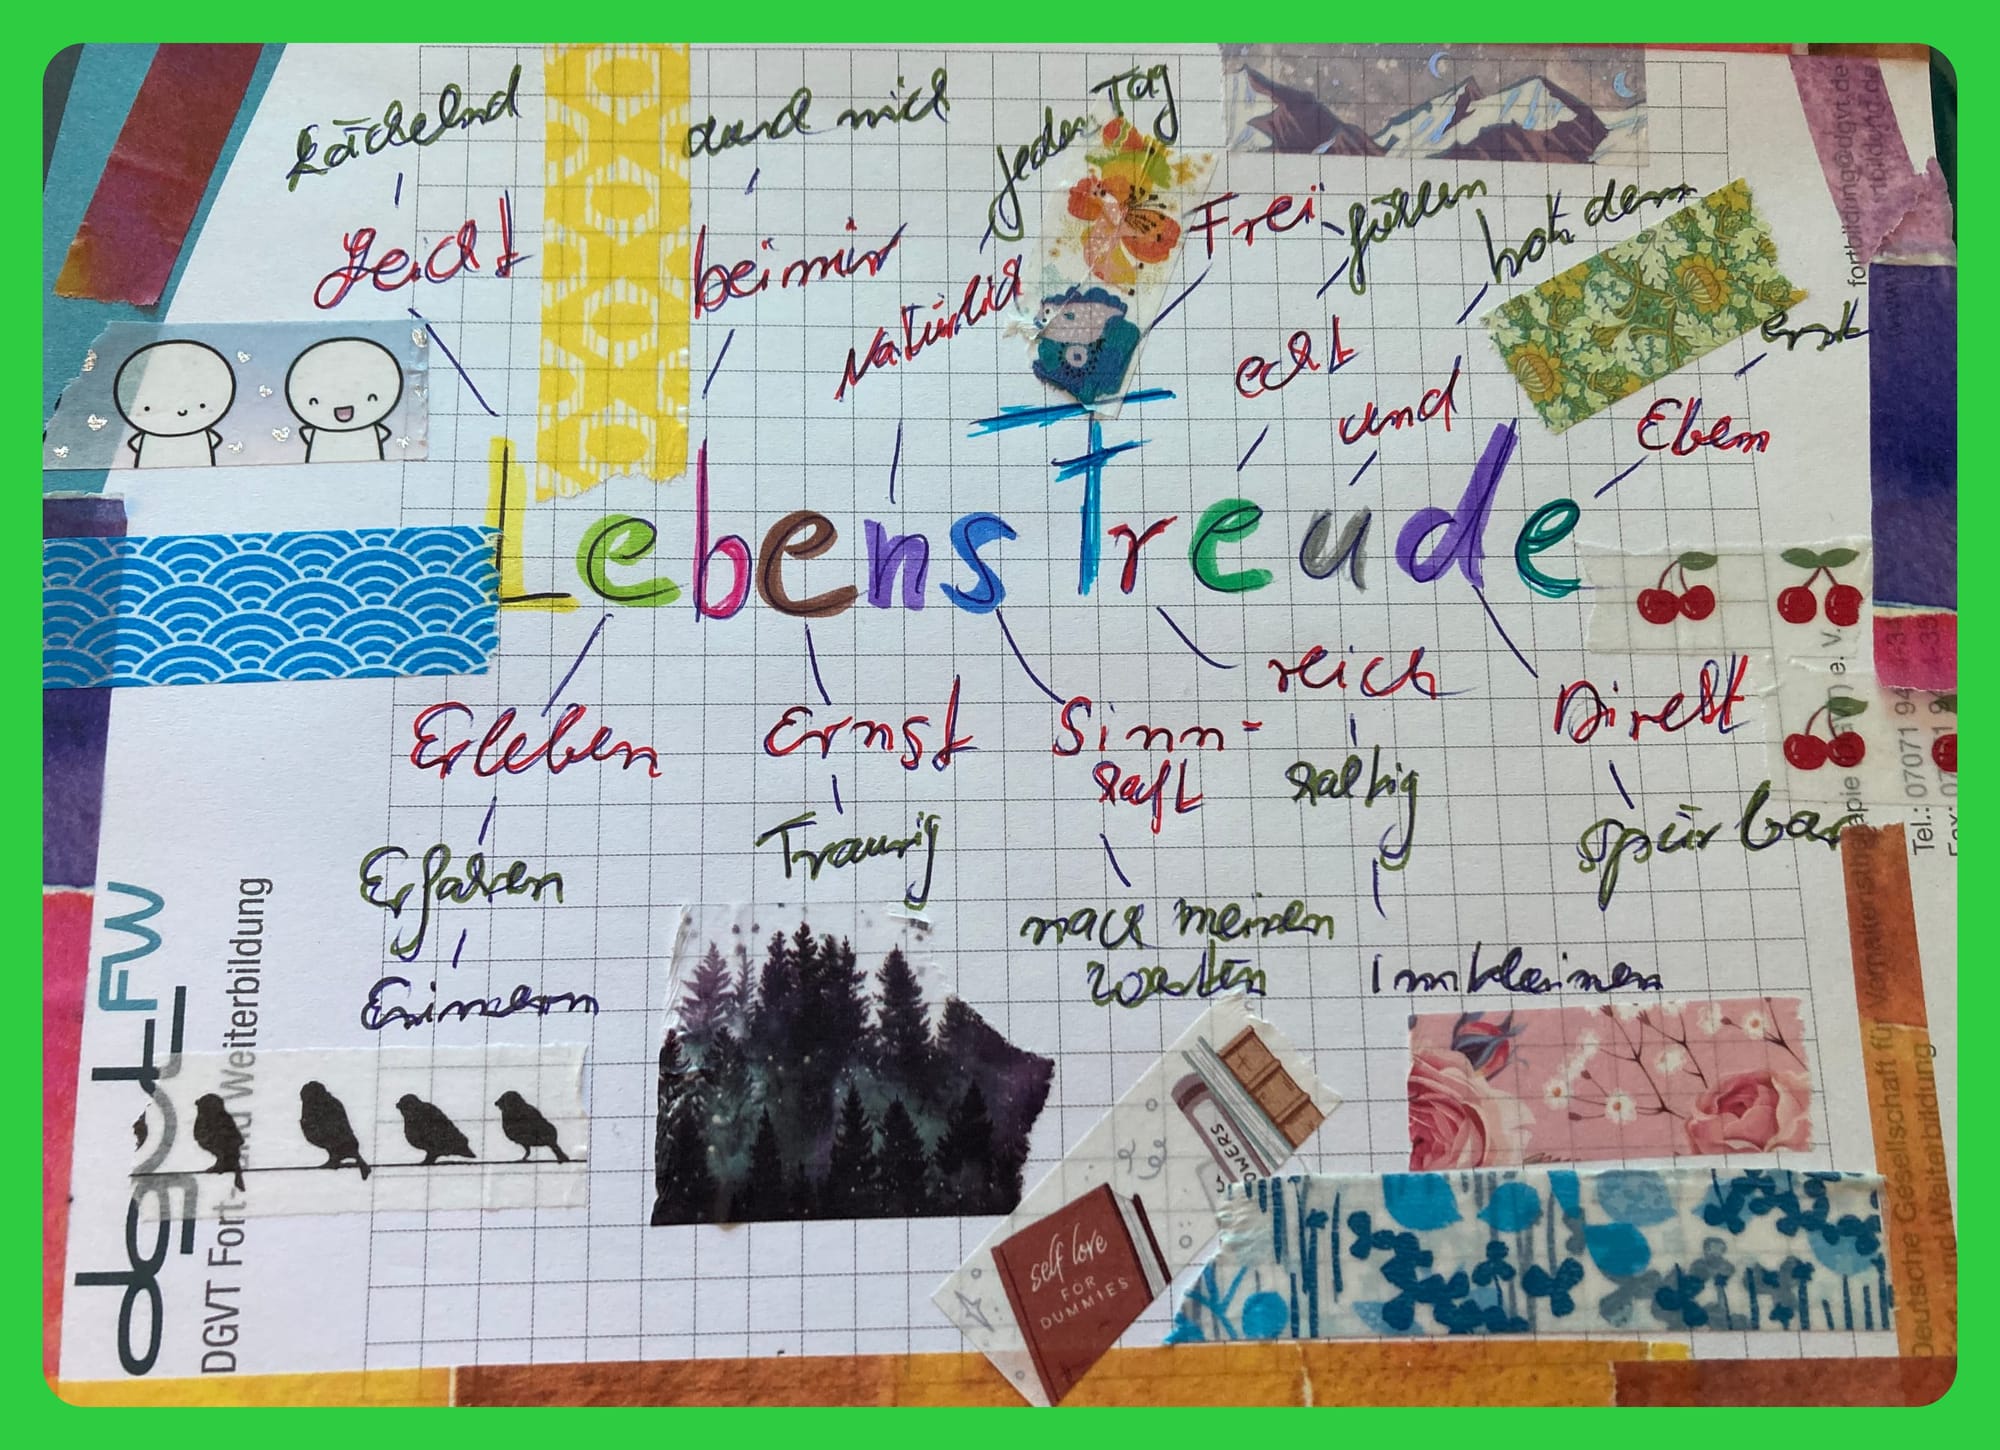 Lächelnd
auch mich
jeden Tag
Leicht
bei mir
Natürlich
Frei
fühlen
trotzdem
echt
und
ernst
Eben
LebensFreude
Erleben
Ernst
Sinn-
haft
reich
Direkt
Erfahren
Traurig
haltig
spürbar
Erinnern
nach meinen
Werten
Im kleinen
dgvt FW
DGVT Fort- und Weiterbildung
self love
FOR
DUMMIES
fortbildung@dgvt.de
Tel.: 07071 94
Deutsche Gesellschaft für Verhaltenstherapie
und Weiterbildung